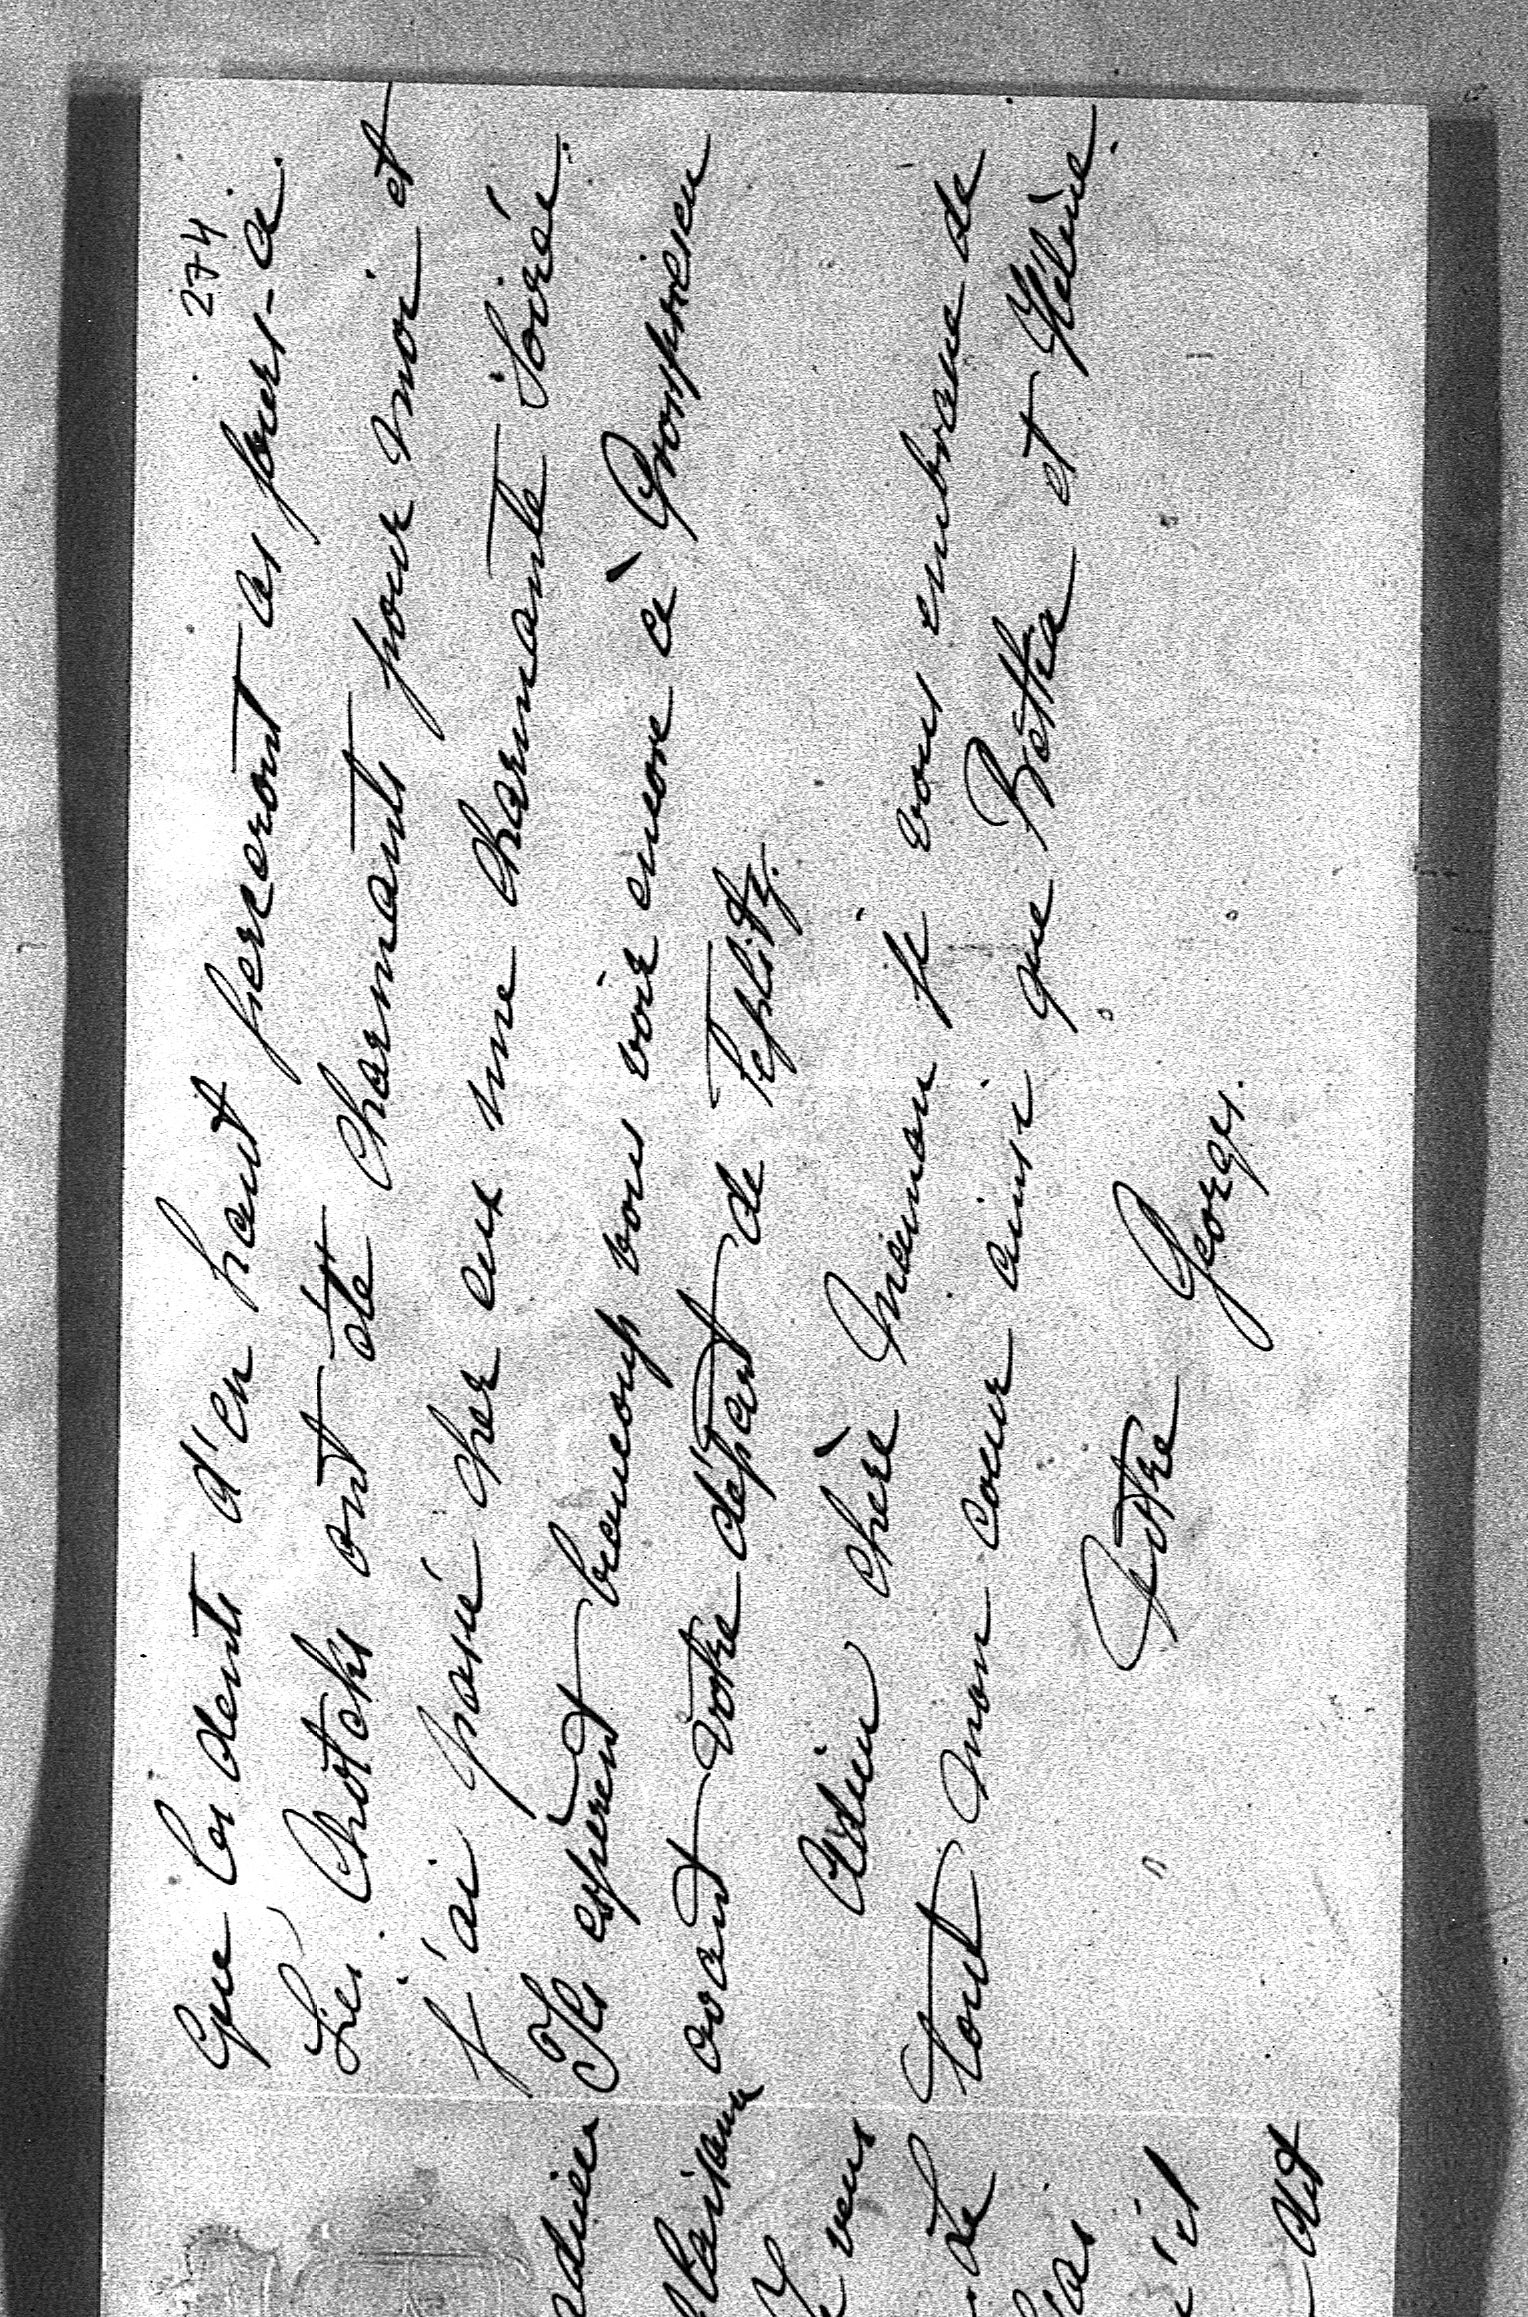 274.
que les dents d'en haut perceront ces jours-ci.
Les Choteks ont été charmants pour moi et
j'ai passé chez eux une charmante soirée.
Ils espèrent beaucoup vous voir encore à
avant votre départ de Teplitz.
Adieu chère Maman je vous embrasse de
tout mon cœur ainsi que Rétka et Hélène.
Votre Georges.
veux
de
pas
'il